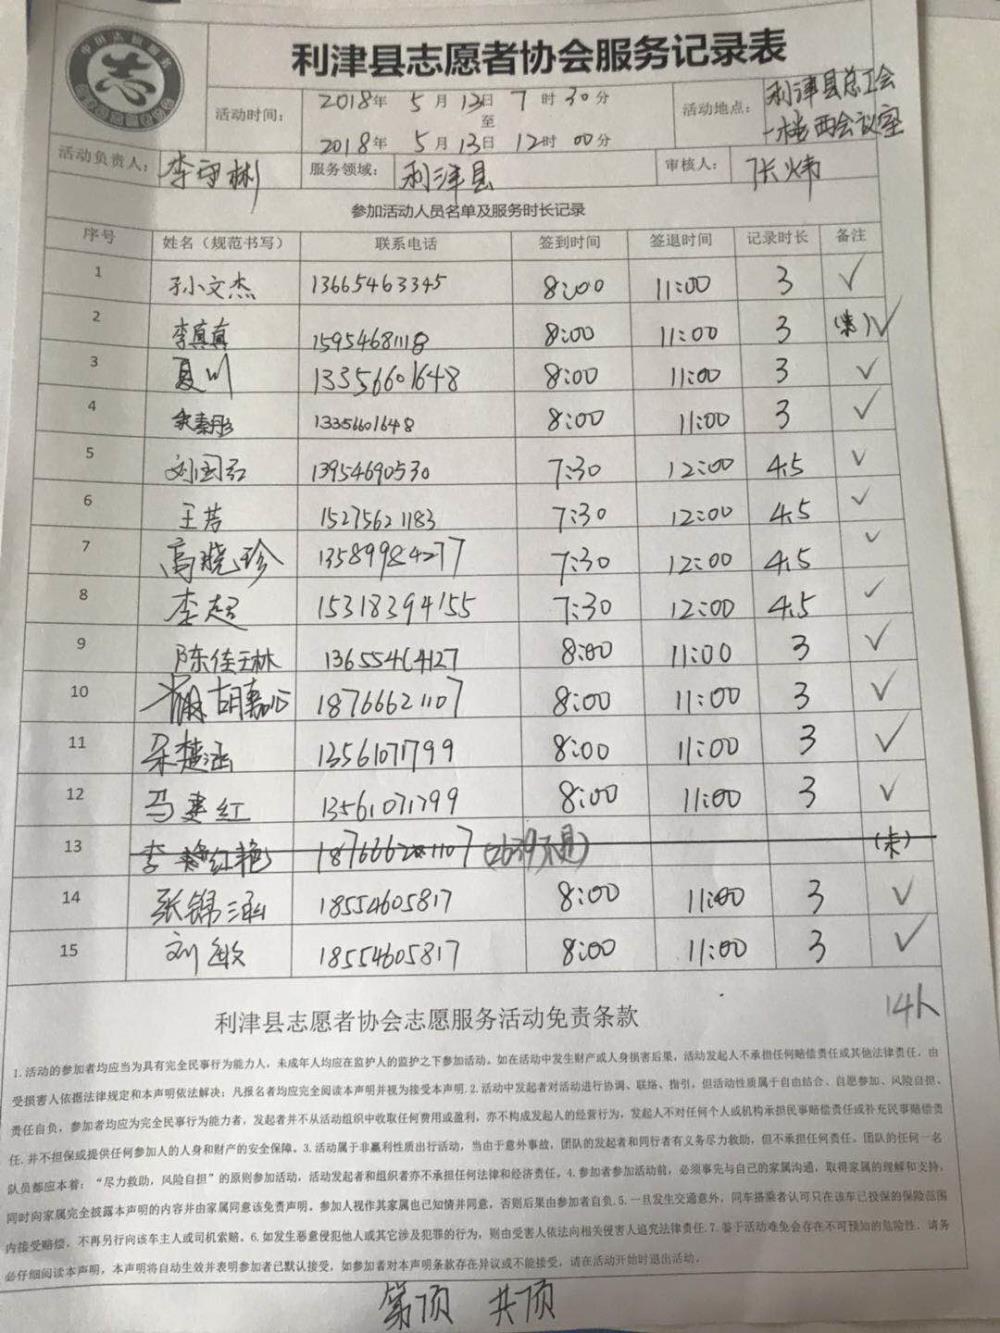 利津县志愿者协会服务记录表
活动时间： 2018年 5月13日 7时30分
至
2018年 5月13日 12时00分
活动地点： 利津县总工会
一楼西会议室
活动负责人： 李守彬 服务领域： 利津县 审核人： 张炜
参加活动人员名单及服务时长记录
序号 姓名（规范书写） 联系电话 签到时间 签退时间 记录时长 备注
1 孙文杰 13665463345 8:00 11:00 3 √
2 李真真 15954681118 8:00 11:00 3 √
3 夏川 13356601648 8:00 11:00 3 √
4 13356601648 8:00 11:00 3 √
5 刘国红 13954690530 7:30 12:00 4.5 √
6 王芳 15275621183 7:30 12:00 4.5 √
7 高晓珍 13589984277 7:30 12:00 4.5 √
8 李超 15318394155 7:30 12:00 4.5 √
9 陈佳琳 13655464127 8:00 11:00 3 √
10 胡嘉心 18766621107 8:00 11:00 3 √
11 朵楚涵 13561071799 8:00 11:00 3 √
12 马建红 13561071799 8:00 11:00 3 √
13 李红艳 18766621107 (未)
14 张锦涵 18554605817 8:00 11:00 3 √
15 刘敏 18554605817 8:00 11:00 3 √
14人
利津县志愿者协会志愿服务活动免责条款
1.活动的参加者均应当为具有完全民事行为能力人，未成年人均应在监护人的监护之下参加活动。如在活动中发生财产或人身损害后果，活动发起人不承担任何赔偿责任或其他法律责任，由
受损害人依据法律规定和本声明依法解决；凡报名者均应完全阅读本声明并视为接受本声明.2.活动中发起者对活动进行协调、联络、指引，但活动性质属于自由结合、自愿参加、风险自担、
责任自负，参加者均应为完全民事行为能力者，发起者并不从活动组织中收取任何费用或盈利，亦不构成发起人的经营行为，发起人不对任何个人或机构承担民事赔偿责任或补充民事赔偿责
任.并不担保或提供任何参加人的人身和财产的安全保障。3.活动属于非赢利性质出行活动，当由于意外事故，团队的发起者和同行者有义务尽力救助，但不承担任何责任。团队的任何一名
队员都应本着：“尽力救助，风险自担”的原则参加活动，活动发起者和组织者亦不承担任何法律和经济责任。4.参加者参加活动前，必须事先与自己的家属沟通，取得家属的理解和支持，
同时向家属完全披露本声明的内容并由家属同意该免责声明。参加人视作其家属也已知情并同意，否则后果由参加者自负.5.一旦发生交通意外，同车搭乘者认可只在该车已投保的保险范围
内接受赔偿，不再另行向该车主人或司机索赔。6.如发生恶意侵犯他人或其它涉及犯罪的行为，则由受害人依法向相关侵害人追究法律责任.7.鉴于活动难免会存在不可预知的危险性．请务
必仔细阅读本声明，本声明将自动生效并表明参加者已默认接受，如参加者对本声明条款存在异议或不能接受，请在活动开始时退出活动。
第 页 共 页